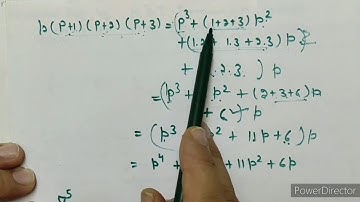 p(p+1)(p+2)(p+3) = (p³ + (1+2+3)p²
+(1.2 + 1.3 + 2.3)p
.2.3)p
= (p³ + p² + (2+3+6)p
+ 6)p
= (p³ + ² + 11p + 6)p
= p⁴ + + 11p² + 6p
PowerDirector